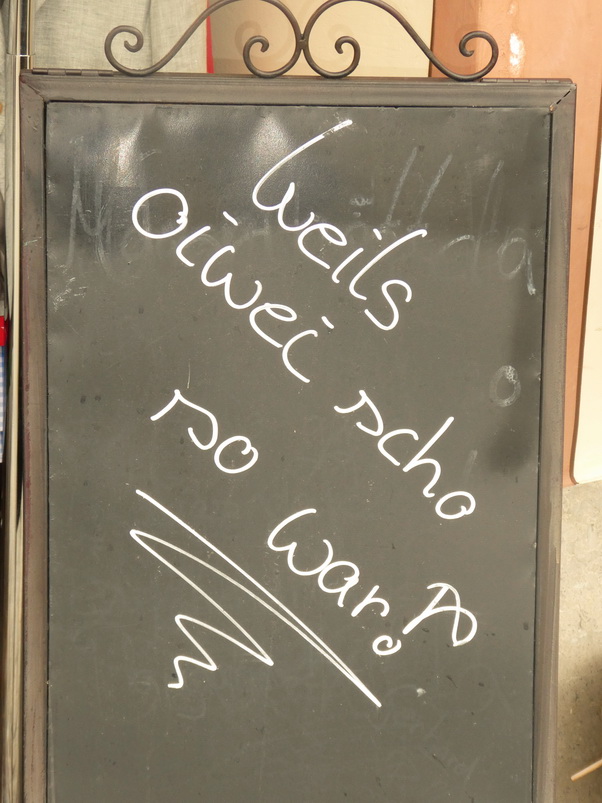 Weils
Oiwei scho
so war!